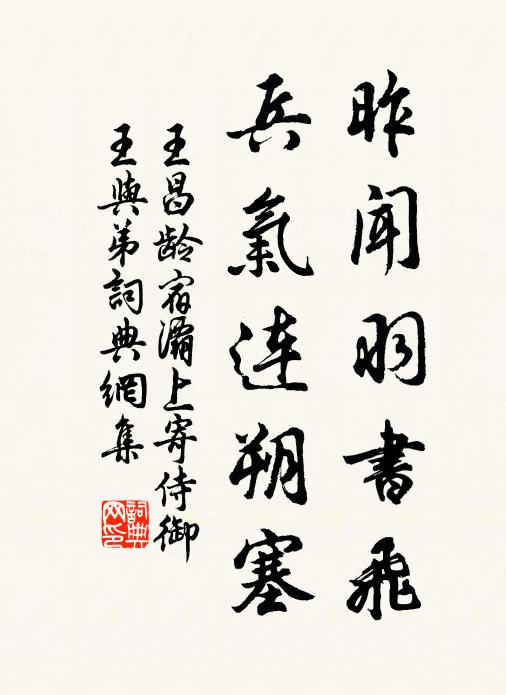 昨聞羽書飛
兵氣連朔塞
王昌龄宿灞上寄侍御
王與弟詞典網集
詞典网印